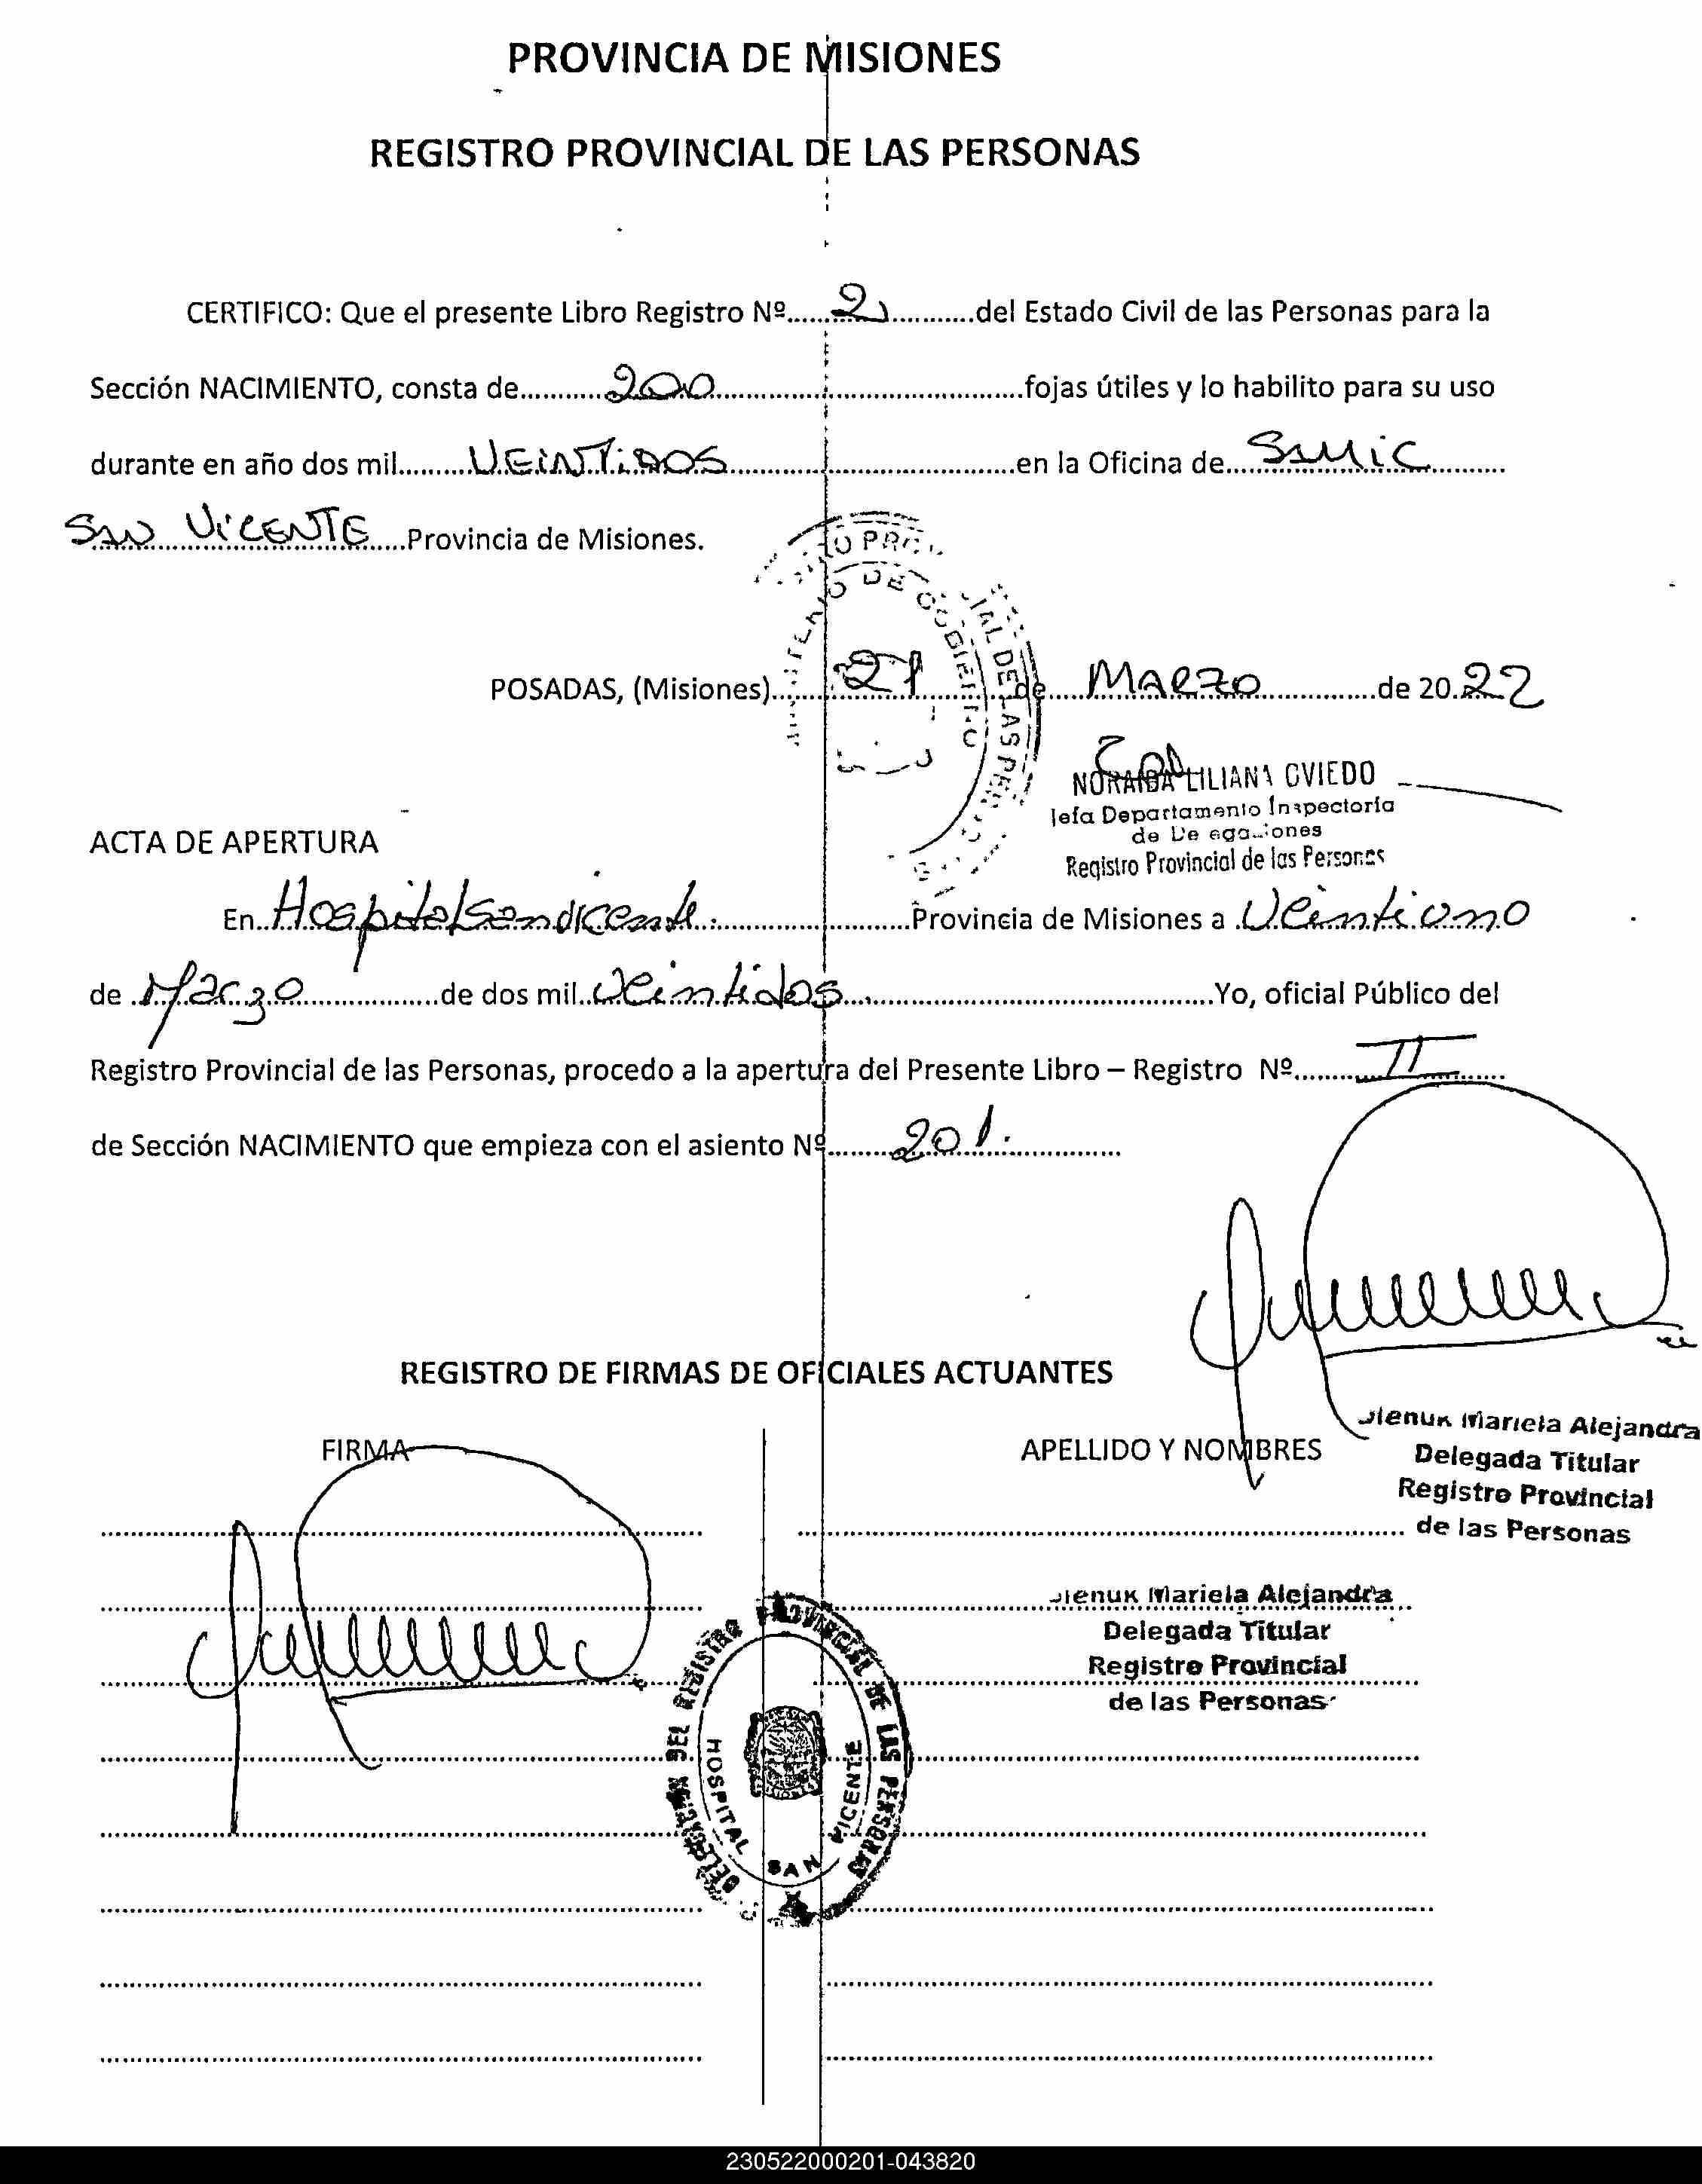 PROVINCIA DE MISIONES
REGISTRO PROVINCIAL DE LAS PERSONAS
CERTIFICO: Que el presente Libro Registro Nº......2............del Estado Civil de las Personas para la
Sección NACIMIENTO, consta de...........200.......................................fojas útiles y lo habilito para su uso
durante en año dos mil.........VEINTIDOS....................................en la Oficina de....SAMIC..........
SAN VICENTE.....Provincia de Misiones.
POSADAS, (Misiones)........21............de.....MARZO...............de 20.22
NORAIDA LILIANA OVIEDO
Jefa Departamento Inspectoría
de Delegaciones
Registro Provincial de las Personas
ACTA DE APERTURA
En..Hospital San Vicente.........................Provincia de Misiones a .Veintiuno
de .Marzo..................de dos mil..Veintidos..............................................Yo, oficial Público del
Registro Provincial de las Personas, procedo a la apertura del Presente Libro – Registro Nº..........II......
de Sección NACIMIENTO que empieza con el asiento Nº.........201...................
REGISTRO DE FIRMAS DE OFICIALES ACTUANTES
Mariela Alejandra
Delegada Titular
Registro Provincial
de las Personas
FIRMA
APELLIDO Y NOMBRES
Mariela Alejandra
Delegada Titular
Registro Provincial
de las Personas
DELEGACION DEL REGISTRO PROVINCIAL DE LAS PERSONAS
HOSPITAL SAN VICENTE
230522000201-043820